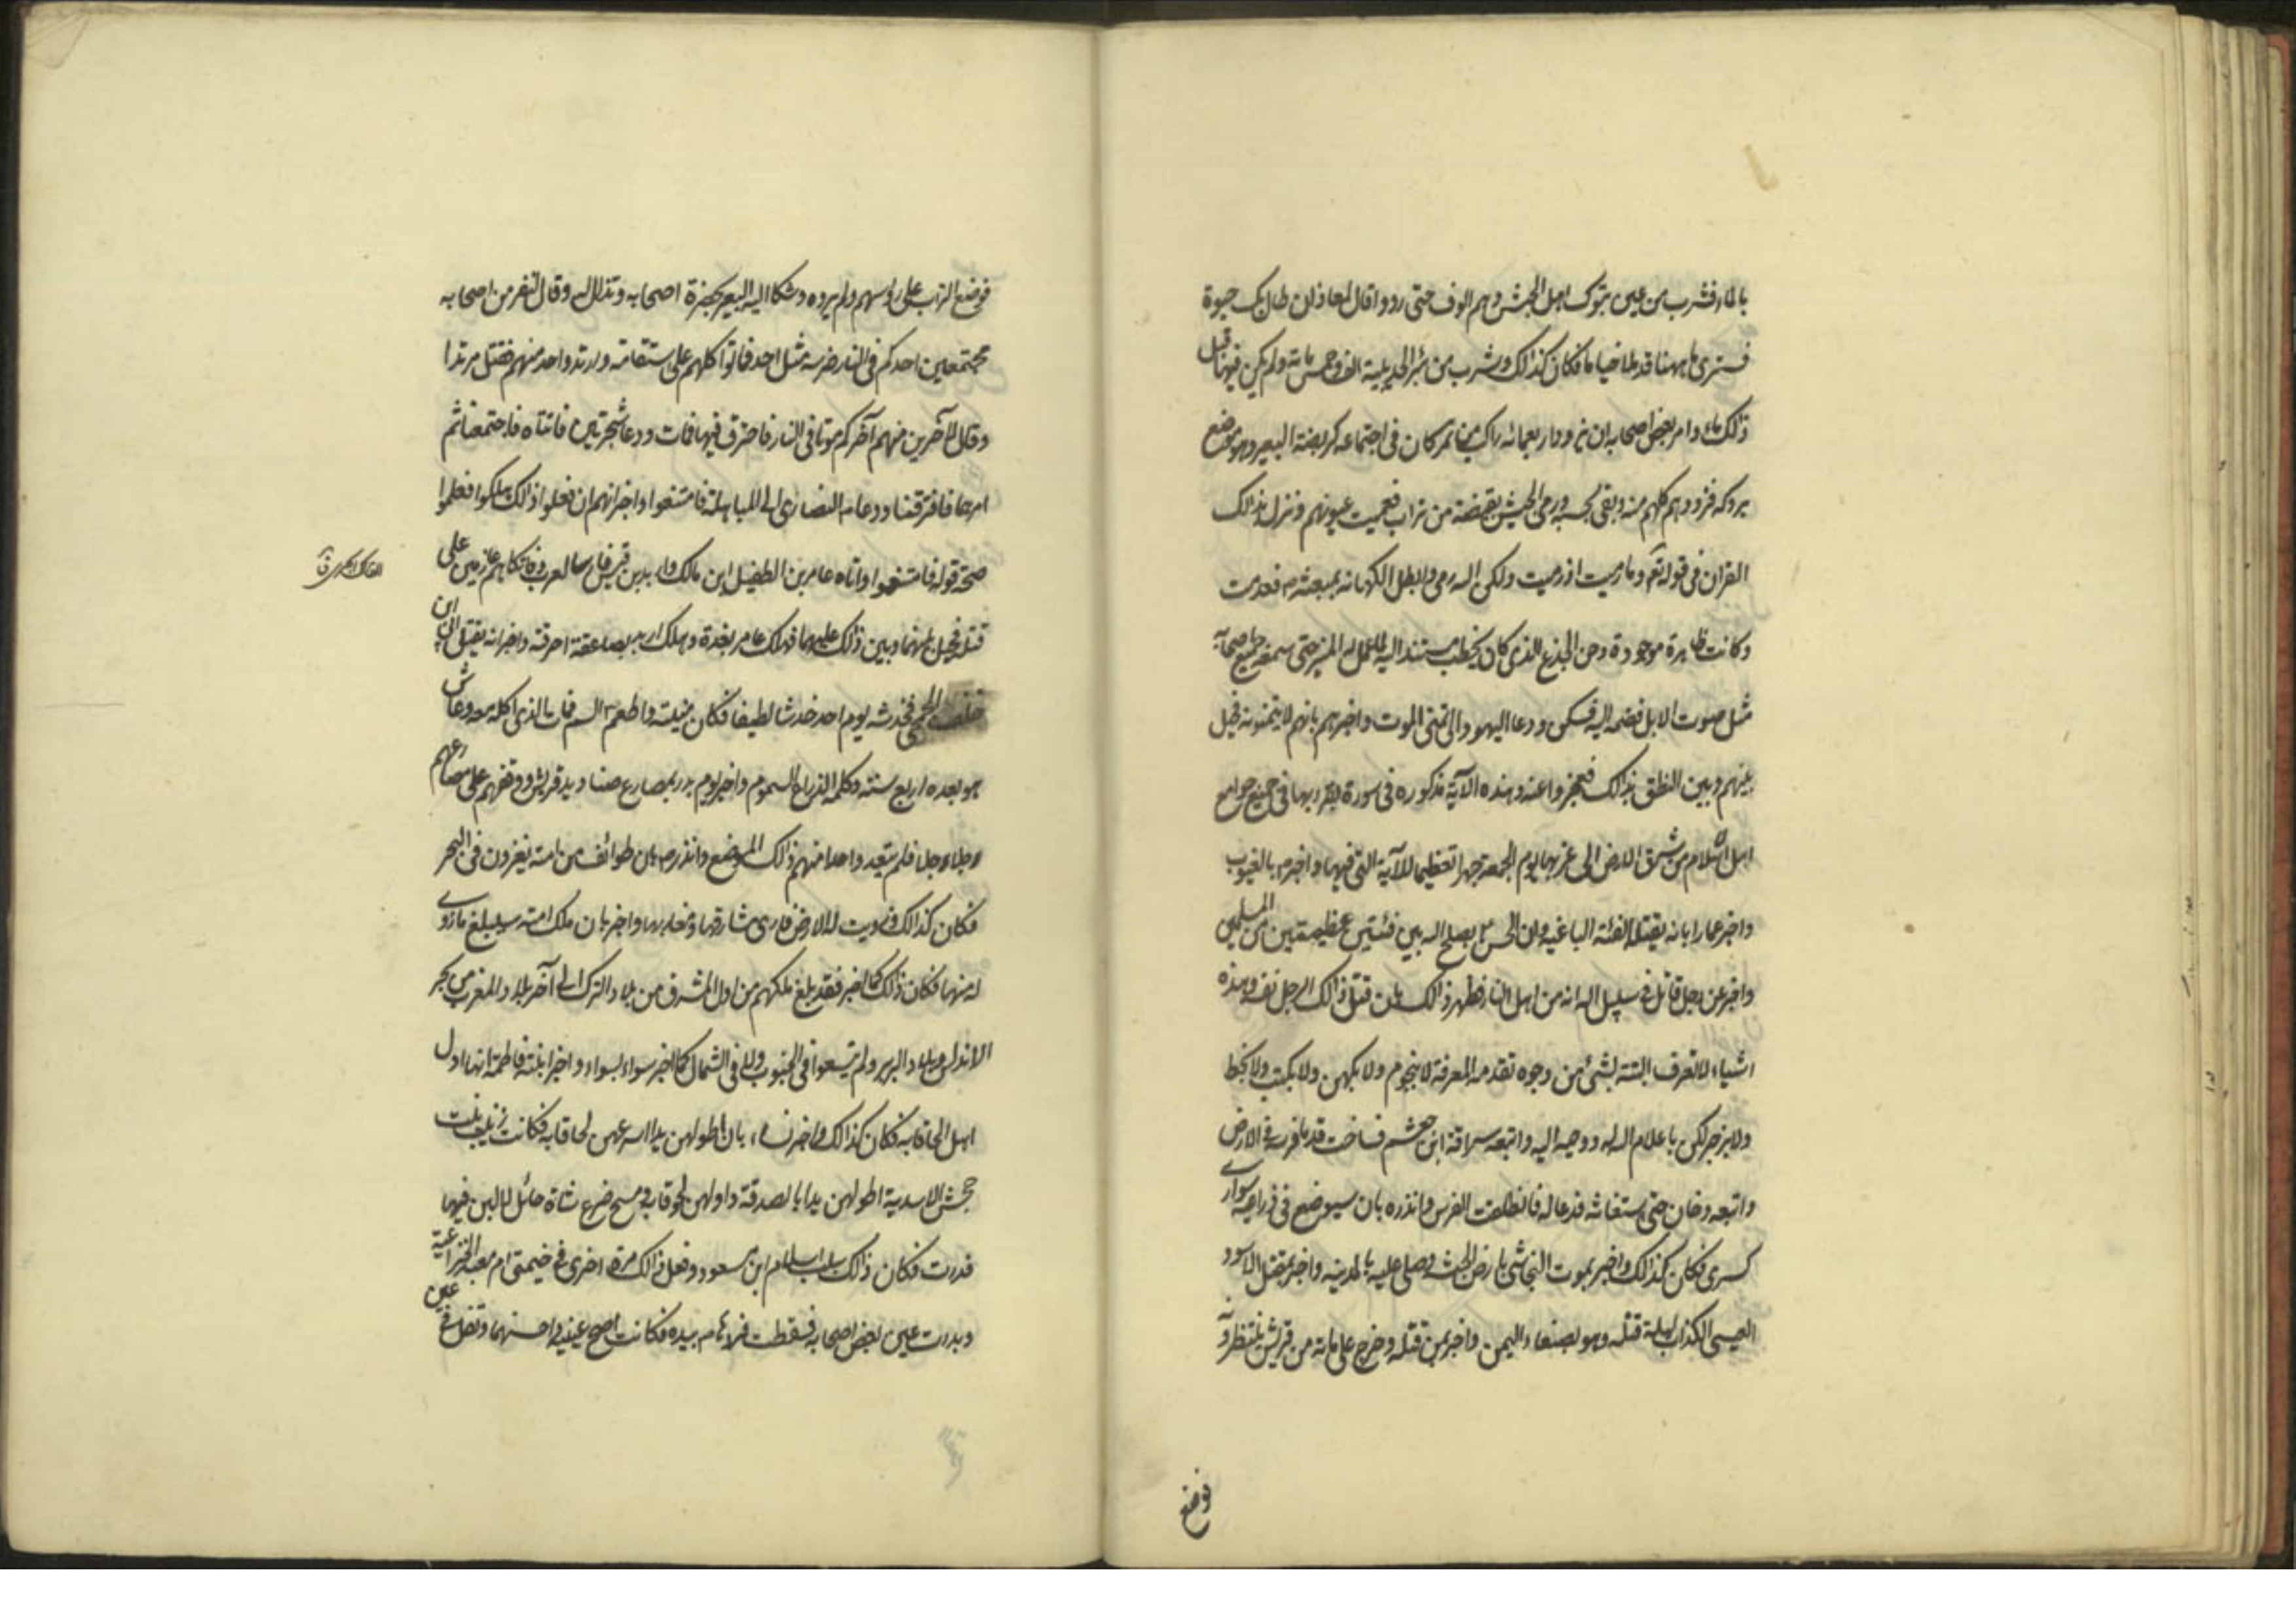 بالماء فشرب من عين تبوك اهل الجيش وهم الوف حتى رووا وقال لمعاذ ان طال بك حيوة
فسترى ما ههنا قد ملأ خيامًا فكان كذالك وشرب من بئر الحديبية الف وخمس مائة ولم يكن فيها قبل
ذلك ماء وامر بعض اصحابه ان يزود اربعمائه راكب من تمر كان فى اجتماعه كربضة البعير وهو موضع
بروكه فزودهم كلهم منه وبقى بحسبه ورمى الجيش بقبضة من تراب فعميت عيونهم ونزل بذالك
القران فى قوله تعم وما رميت اذ رميت ولكن الله رمى وابطل الكهانه بمبعثه فعدمت
وكانت ظاهرة موجودة وحن الجذع الذى كان يخطب مستندا اليه لما عمل له المنبر حتى سمعه جميع اصحابه
مثل صوت الابل فضمه اليه فسكن ودعا اليهود الى تمنى الموت واخبرهم بانهم لا يتمنونه فحيل
بينهم وبين النطق بذالك فعجزوا عنه وهذه الآية مذكوره فى سورة يقرء بها فى جميع جوامع
اهل الاسلام من شرق الارض الى غربها يوم الجمعة جهرا تعظيما للآية التى فيها واخبر بالغيوب
واخبر عمارا بانه تقتله الفئة الباغيه وان الحسن يصلح الله بين فئتين عظيمتين من المسلمين
واخبر عن رجل قاتل فى سبيل الله انه من اهل النار فظهر ذالك بان قتل ذالك الرجل نفسه وهذه
اشياء لا تعرف البتة بشئ من وجوه تقدمه المعرفة لا بنجوم ولا بكهن ولا بكتب ولا بخط
ولا بزجر لكن باعلام الله له ووحيه اليه واتبعه سراقة ابن جعشم فساخت قدما فرسه فى الارض
واتبعه دخان حتى استغاثه فدعا له فانطلقت الفرس وانذره بان سيوضع فى ذراعيه سوارى
كسرى فكان كذالك واخبر بموت النجاشى بارض الحبشه وصلى عليه بالمدينه واخبر بمقتل الاسود
العيسى الكذاب ليلة قتله وهو بصنعاء اليمن واخبر بمن قتله وخرج على مائة من قريش ينتظرونه
فوضع
فوضع التراب على رؤسهم ولم يروه وشكا اليه البعير بحضرة اصحابه وتذلل له وقال لنفر من اصحابه
مجتمعين احدكم فى النار ضرسه مثل احد فماتوا كلهم على استقامة وارتد واحد منهم فقتل مرتدا
وقال لآخرين منهم آخركم موتا فى النار فاحترق فيها فمات ودعا شجرتين فاتتاه فاجتمعتا ثم
امرهما فافترقتا ودعا النصارى الى المباهلة فامتنعوا واخبر انهم ان فعلوا ذالك هلكوا فعلموا
صحة قوله فامتنعوا واتاه عامر بن الطفيل ابن مالك واربد بن قيس فارسا العرب وفاتكاهم عازمين على
قتله فحيل بينهما وبين ذالك عليهما فهلك عامر بغدة وهلك اربد بصاعقة احرقته واخبر انه يقتل ابى ابن
خلف الجمحى فخدشه يوم احد خدشا لطيفا فكان منيته واطعم السم فمات الذى اكله معه وعاش
هو بعده اربع سنة وكلمه الذراع المسموم واخبر يوم بدر بمصارع صناديد قريش ووقفهم على مصارعهم
رجلا رجلا فلم يتعد واحدا منهم ذالك الموضع وانذر بان طوائف من امته يغزون فى البحر
فكان كذالك وزويت له الارض فارى مشارقها ومغاربها واخبر بان ملك امته سيبلغ ما زوى
له منها فكان ذالك كما اخبر فقد بلغ ملكهم من اول المشرق من بلاد الترك الى آخر بلاد المغرب من بحر
الاندلس وبلاد البربر ولم يتسعوا فى الجنوب ولا فى الشمال كما اخبر سواء بسواء واخبر ابنته فاطمة انها اول
اهل لحاقا به فكان كذالك واخبر نساءه بان اطولهن يدا اسرعهن لحاقا به فكانت زينب بنت
جحش الاسدية اطولهن يدا بالصدقة واولهن لحوقا به ومسح ضرع شاة حائل لا لبن فيها
فدرت فكان ذالك سبب اسلام ابن مسعود وفعل ذالك مرة اخرى فى خيمتى ام معبد الخزاعية
وبدرت عين بعض اصحابه فسقطت فردها بيده فكانت اصح عينيه واحسنهما وتفل فى عين